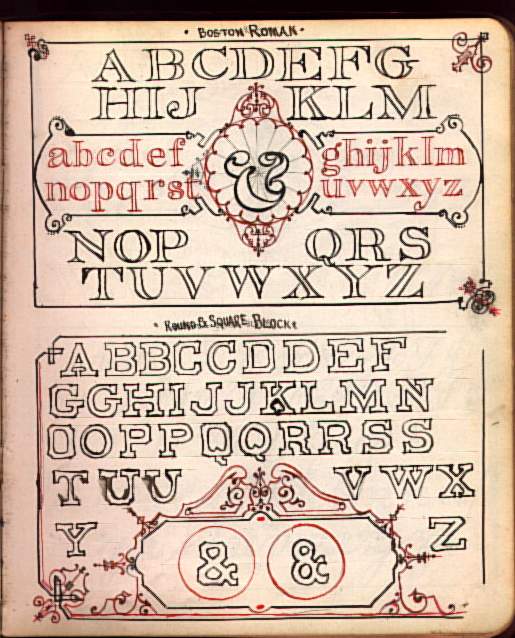 BOSTON ROMAN
ABCDEFG
HIJ KLM
abcdef
nopqrst
&
ghijklm
uvwxyz
NOP QRS
TUVWXYZ
ROUND & SQUARE BLOCK
ABBCCDDEF
GGHIJJKLMN
OOPPQQRRSS
TUU VWX
Y Z
& &